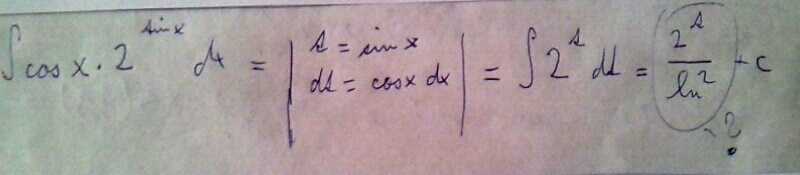 ∫ cos x · 2^{sin x} dx = | s = sin x
ds = cos x dx | = ∫ 2^s ds = 2^s / ln 2 + c
- ?